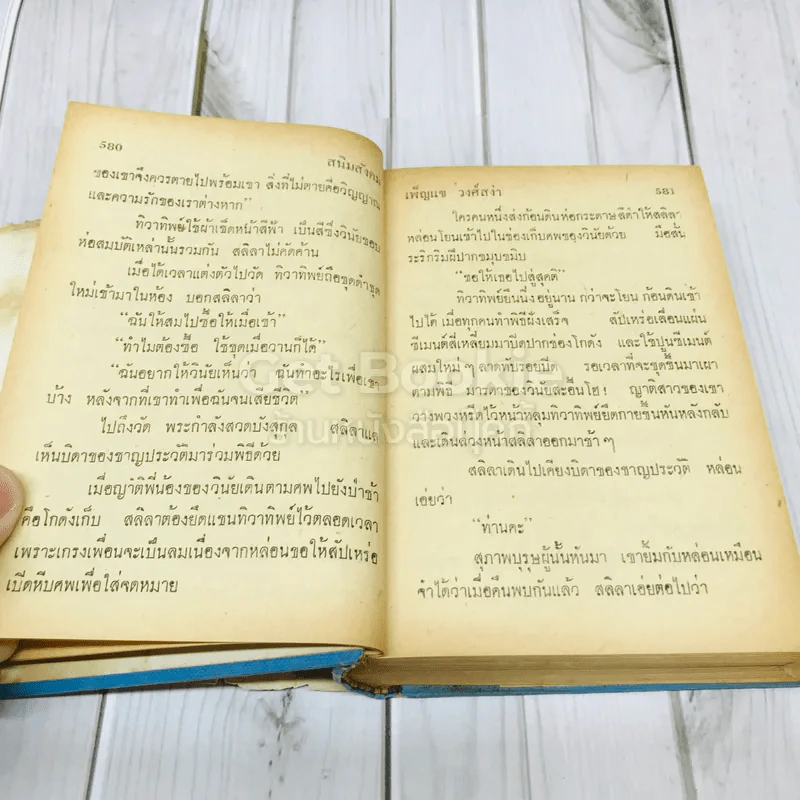 580
สนิมสังคม
ของเขาจึงควรตายไปพร้อมเขา สิ่งที่ไม่ตายคือวิญญาณ
และความรักของเราต่างหาก”
ทิวาทิพย์ใช้ผ้าเช็ดหน้าสีฟ้า เป็นสีซึ่งวินัยชอบ
ห่อสมบัติเหล่านั้นรวมกัน สลิลาไม่คัดค้าน
เมื่อได้เวลาแต่งตัวไปวัด ทิวาทิพย์ถือชุดดำชุด
ใหม่เข้ามาในห้อง บอกสลิลาว่า
“ฉันให้สมไปซื้อให้เมื่อเช้า”
“ทำไมต้องซื้อ ใช้ชุดเมื่อวานก็ได้”
“ฉันอยากให้วินัยเห็นว่า ฉันทำอะไรเพื่อเขา
บ้าง หลังจากที่เขาทำเพื่อฉันจนเสียชีวิต”
ไปถึงวัด พระกำลังสวดบังสุกุล สลิลาแล
เห็นบิดาของชาญประวัติมาร่วมพิธีด้วย
เมื่อญาติพี่น้องของวินัยเดินตามศพไปยังป่าช้า
คือโกดังเก็บ สลิลาต้องยึดแขนทิวาทิพย์ไว้ตลอดเวลา
เพราะเกรงเพื่อนจะเป็นลมเนื่องจากหล่อนขอให้สัปเหร่อ
เปิดหีบศพเพื่อใส่จดหมาย
เพ็ญแข วงศ์สง่า
581
ใครคนหนึ่งส่งก้อนดินห่อกระดาษสีดำให้สลิลา
หล่อนโยนเข้าไปในช่องเก็บศพของวินัยด้วย มือสั่น
ระริกริมฝีปากขมุบขมิบ
“ขอให้เธอไปสู่สุคติ”
ทิวาทิพย์ยืนนิ่งอยู่นาน กว่าจะโยน ก้อนดินเข้า
ไปได้ เมื่อทุกคนทำพิธีฝังเสร็จ สัปเหร่อเลื่อนแผ่น
ซีเมนต์สี่เหลี่ยมมาปิดปากช่องโกดัง และใช้ปูนซีเมนต์
ผสมใหม่ ๆ ลาดทับรอยปิด รอเวลาที่จะขุดขึ้นมาเผา
ตามพิธี มารดาของวินัยสะอื้นโฮ! ญาติสาวของเขา
วางพวงหรีดไว้หน้าหลุมทิวาทิพย์ยืดกายขึ้นหันหลังกลับ
และเดินล่วงหน้าสลิลาออกมาช้า ๆ
สลิลาเดินไปเคียงบิดาของชาญประวัติ หล่อน
เอ่ยว่า
“ท่านคะ”
สุภาพบุรุษผู้นั้นหันมา เขายิ้มกับหล่อนเหมือน
จำได้ว่าเมื่อคืนพบกันแล้ว สลิลาเอ่ยต่อไปว่า